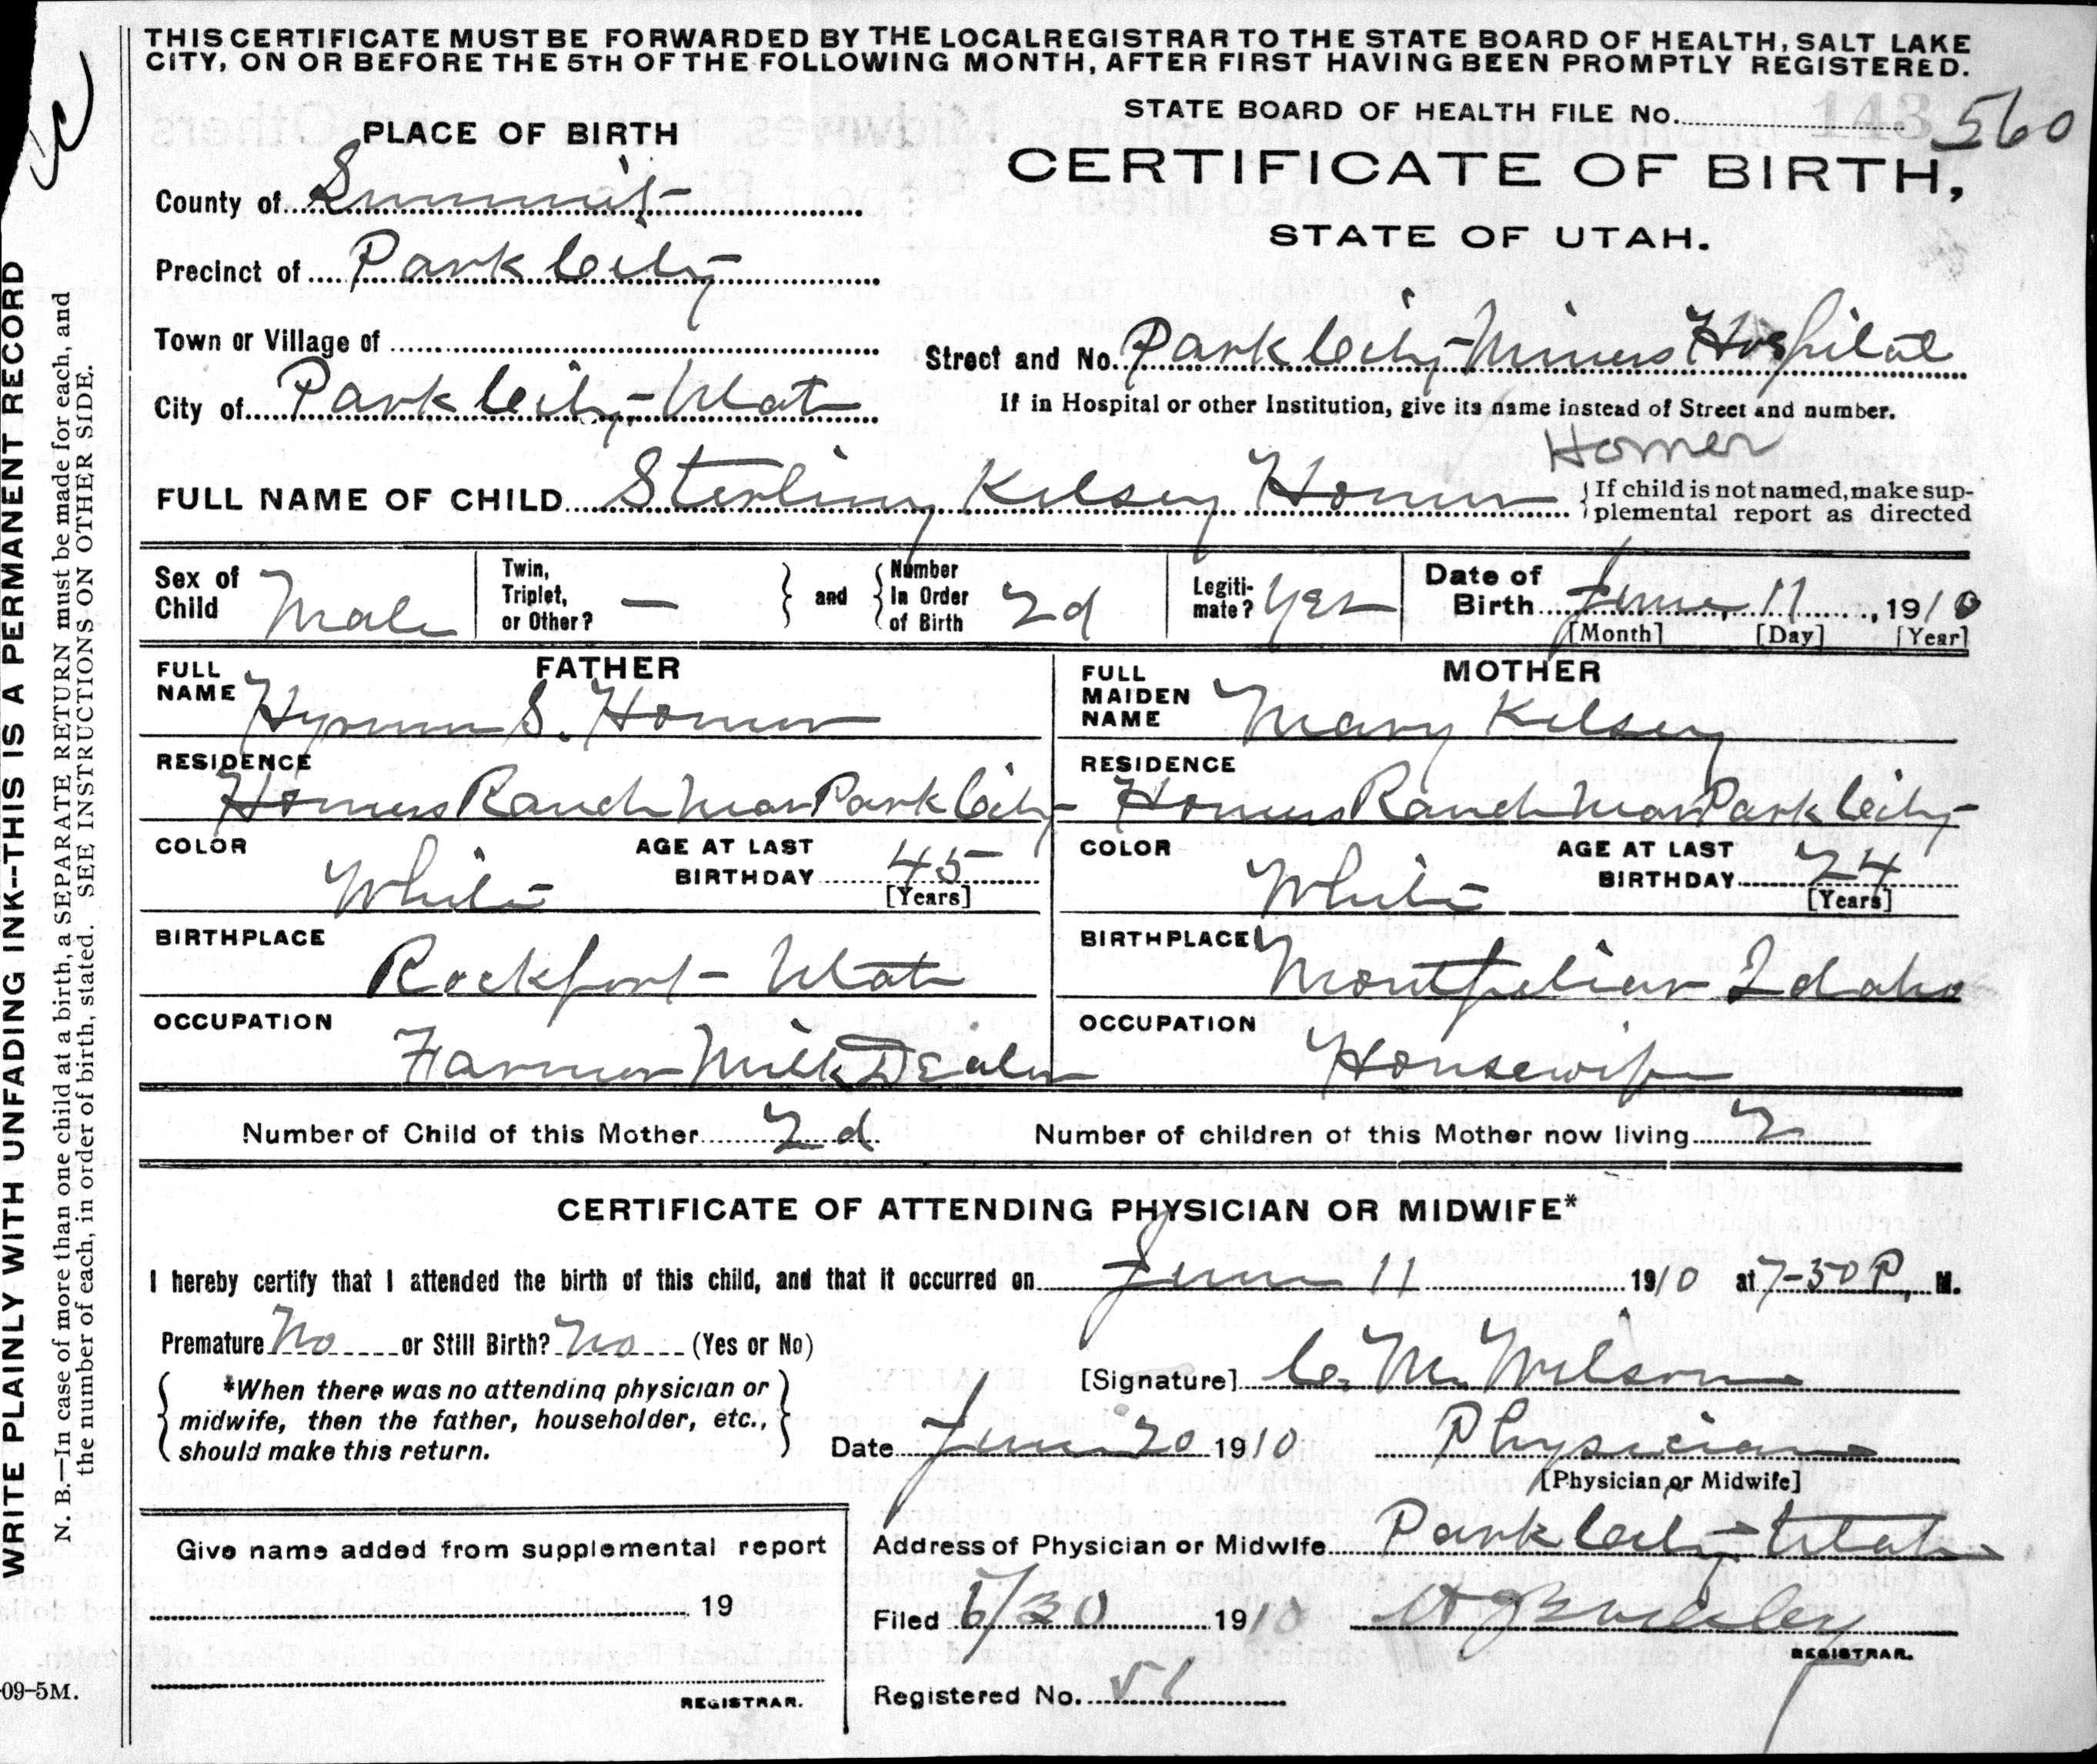 THIS CERTIFICATE MUST BE FORWARDED BY THE LOCAL REGISTRAR TO THE STATE BOARD OF HEALTH, SALT LAKE
CITY, ON OR BEFORE THE 5TH OF THE FOLLOWING MONTH, AFTER FIRST HAVING BEEN PROMPTLY REGISTERED.
STATE BOARD OF HEALTH FILE No. 143 560
PLACE OF BIRTH
CERTIFICATE OF BIRTH,
STATE OF UTAH.
County of Summit
Precinct of Park City
Town or Village of
Street and No. Park City Miners Hospital
City of Park City Utah
If in Hospital or other Institution, give its name instead of Street and number.
Homer
FULL NAME OF CHILD Sterling Kelsey Homer
If child is not named, make sup-
plemental report as directed
Sex of Child Male
Twin, Triplet, or Other? —
and
Number In Order of Birth 2d
Legiti-mate? Yes
Date of Birth June 11, 1910
[Month] [Day] [Year]
FATHER
FULL NAME Hyrum S. Homer
RESIDENCE
Homers Ranch Near Park City
COLOR White
AGE AT LAST BIRTHDAY 45
[Years]
BIRTHPLACE
Rockport Utah
OCCUPATION
Farmer Milk Dealer
MOTHER
FULL MAIDEN NAME Mary Kelsey
RESIDENCE
Homers Ranch Near Park City
COLOR White
AGE AT LAST BIRTHDAY 24
[Years]
BIRTHPLACE
Montpelier Idaho
OCCUPATION
Housewife
Number of Child of this Mother 2d
Number of children of this Mother now living 2
CERTIFICATE OF ATTENDING PHYSICIAN OR MIDWIFE*
I hereby certify that I attended the birth of this child, and that it occurred on June 11 1910 at 7-30 P, M.
Premature No or Still Birth? No (Yes or No)
*When there was no attending physician or
midwife, then the father, householder, etc.,
should make this return.
[Signature] C. M. Wilson
Date June 20 1910 Physician
[Physician or Midwife]
Address of Physician or Midwife Park City Utah
Filed 6/30 1910
REGISTRAR.
Registered No. 51
Give name added from supplemental report
19
REGISTRAR.
WRITE PLAINLY WITH UNFADING INK--THIS IS A PERMANENT RECORD
N. B.—In case of more than one child at a birth, a SEPARATE RETURN must be made for each, and
the number of each, in order of birth, stated. SEE INSTRUCTIONS ON OTHER SIDE.
09-5M.